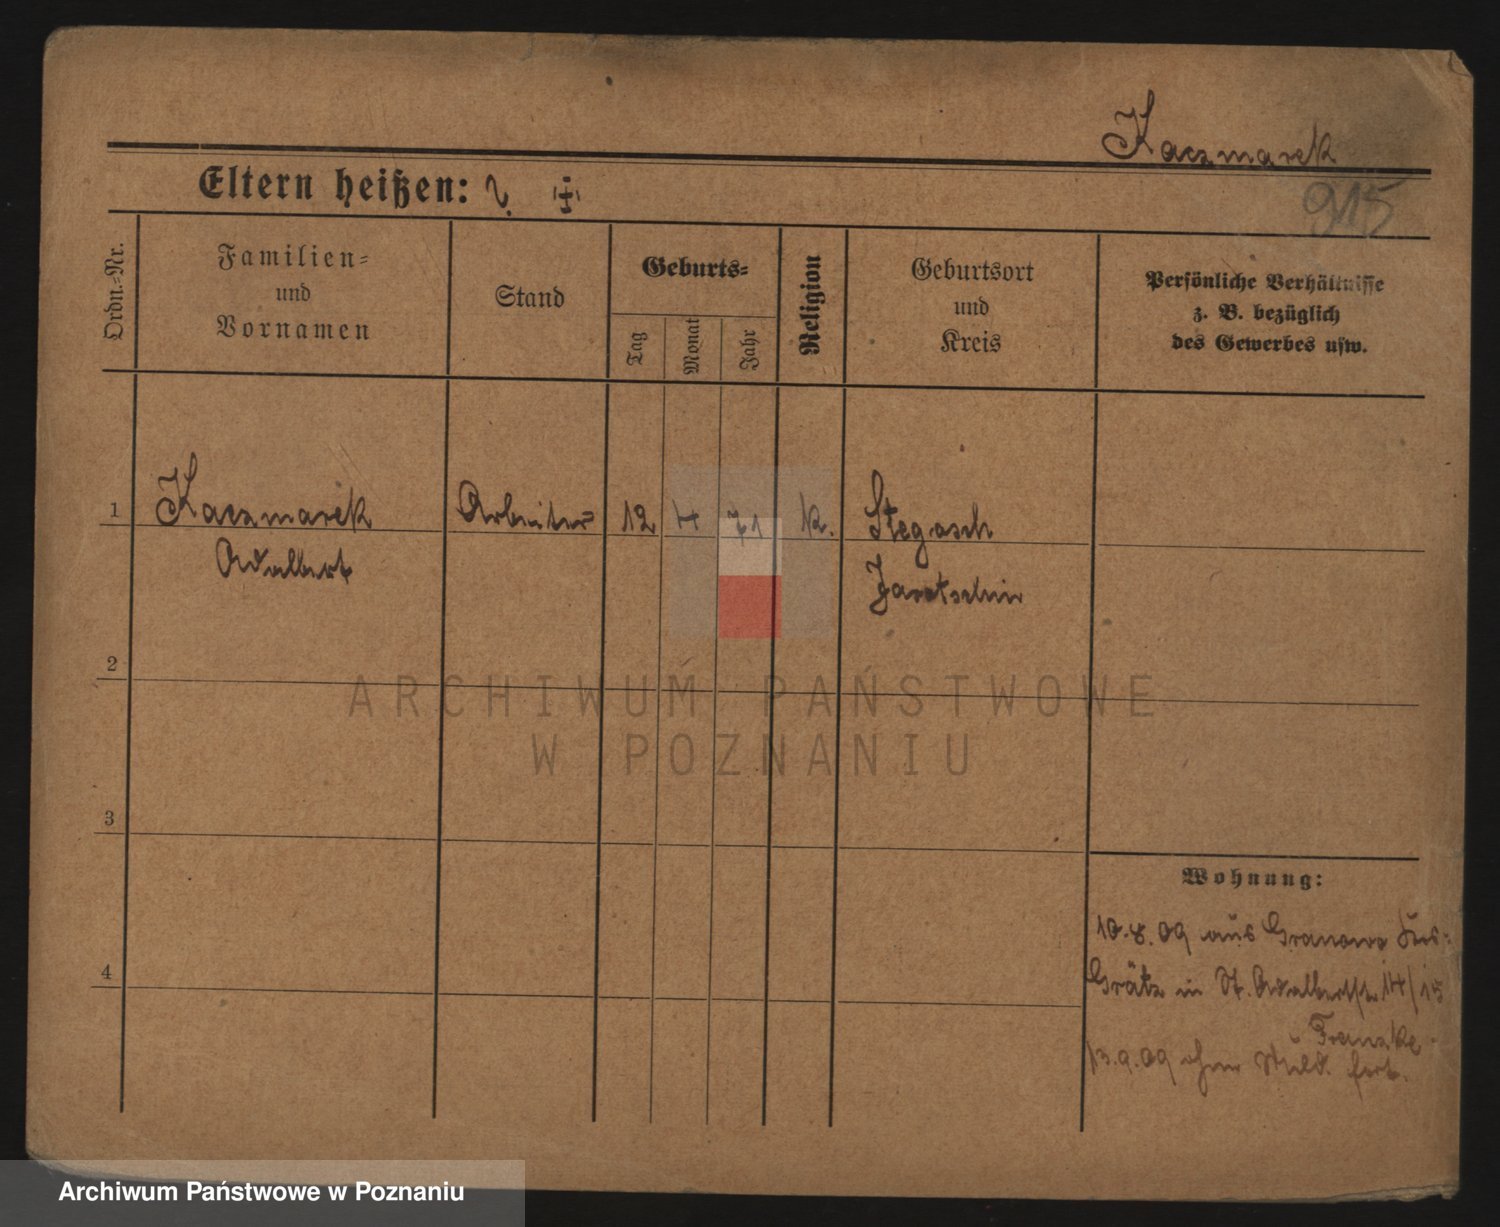 Kaczmarek
Eltern heißen: ? ‡
915
Ordn.-Nr.
Familien-
und
Vornamen
Stand
Geburts-
Tag
Monat
Jahr
Religion
Geburtsort
und
Kreis
Persönliche Verhältnisse
z. B. bezüglich
des Gewerbes usw.
1 Kaczmarek Arbeiter 12 4 71 k. Stegosch
Adalbert Jarotschin
2
ARCHIWUM PAŃSTWOWE
W POZNANIU
3
Wohnung:
10.8.09 aus Granowo Krs.
4
Grätz in St. Adalbertstr. 14/15
Franzke
13.9.09 ohne Meld. fort.
Archiwum Państwowe w Poznaniu